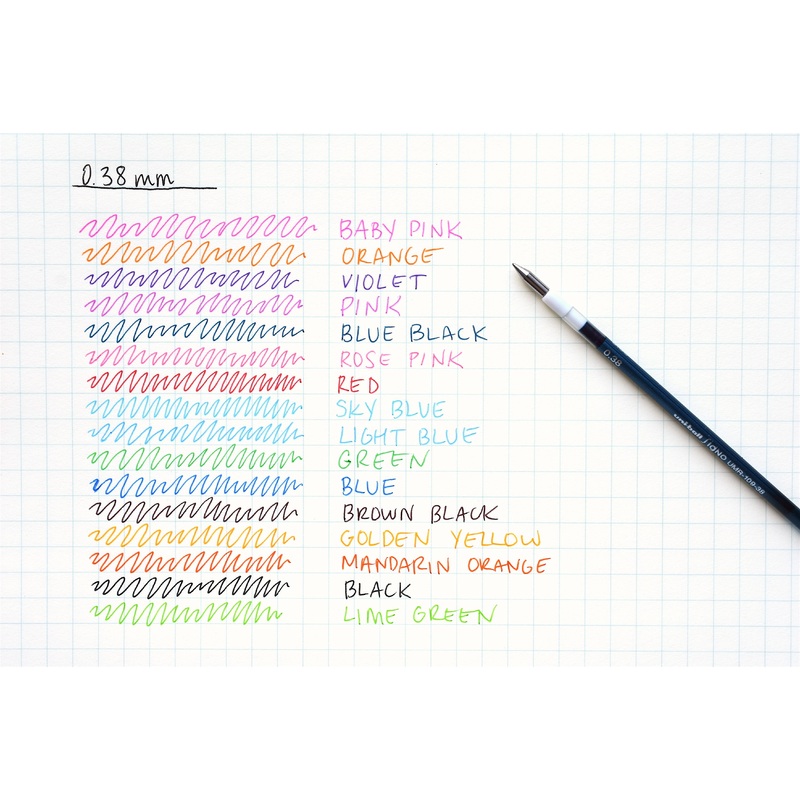 0.38 mm
BABY PINK
ORANGE
VIOLET
PINK
BLUE BLACK
ROSE PINK
RED
SKY BLUE
LIGHT BLUE
GREEN
BLUE
BROWN BLACK
GOLDEN YELLOW
MANDARIN ORANGE
BLACK
LIME GREEN
0.38
uni-ball SIGNO UMR-109-38